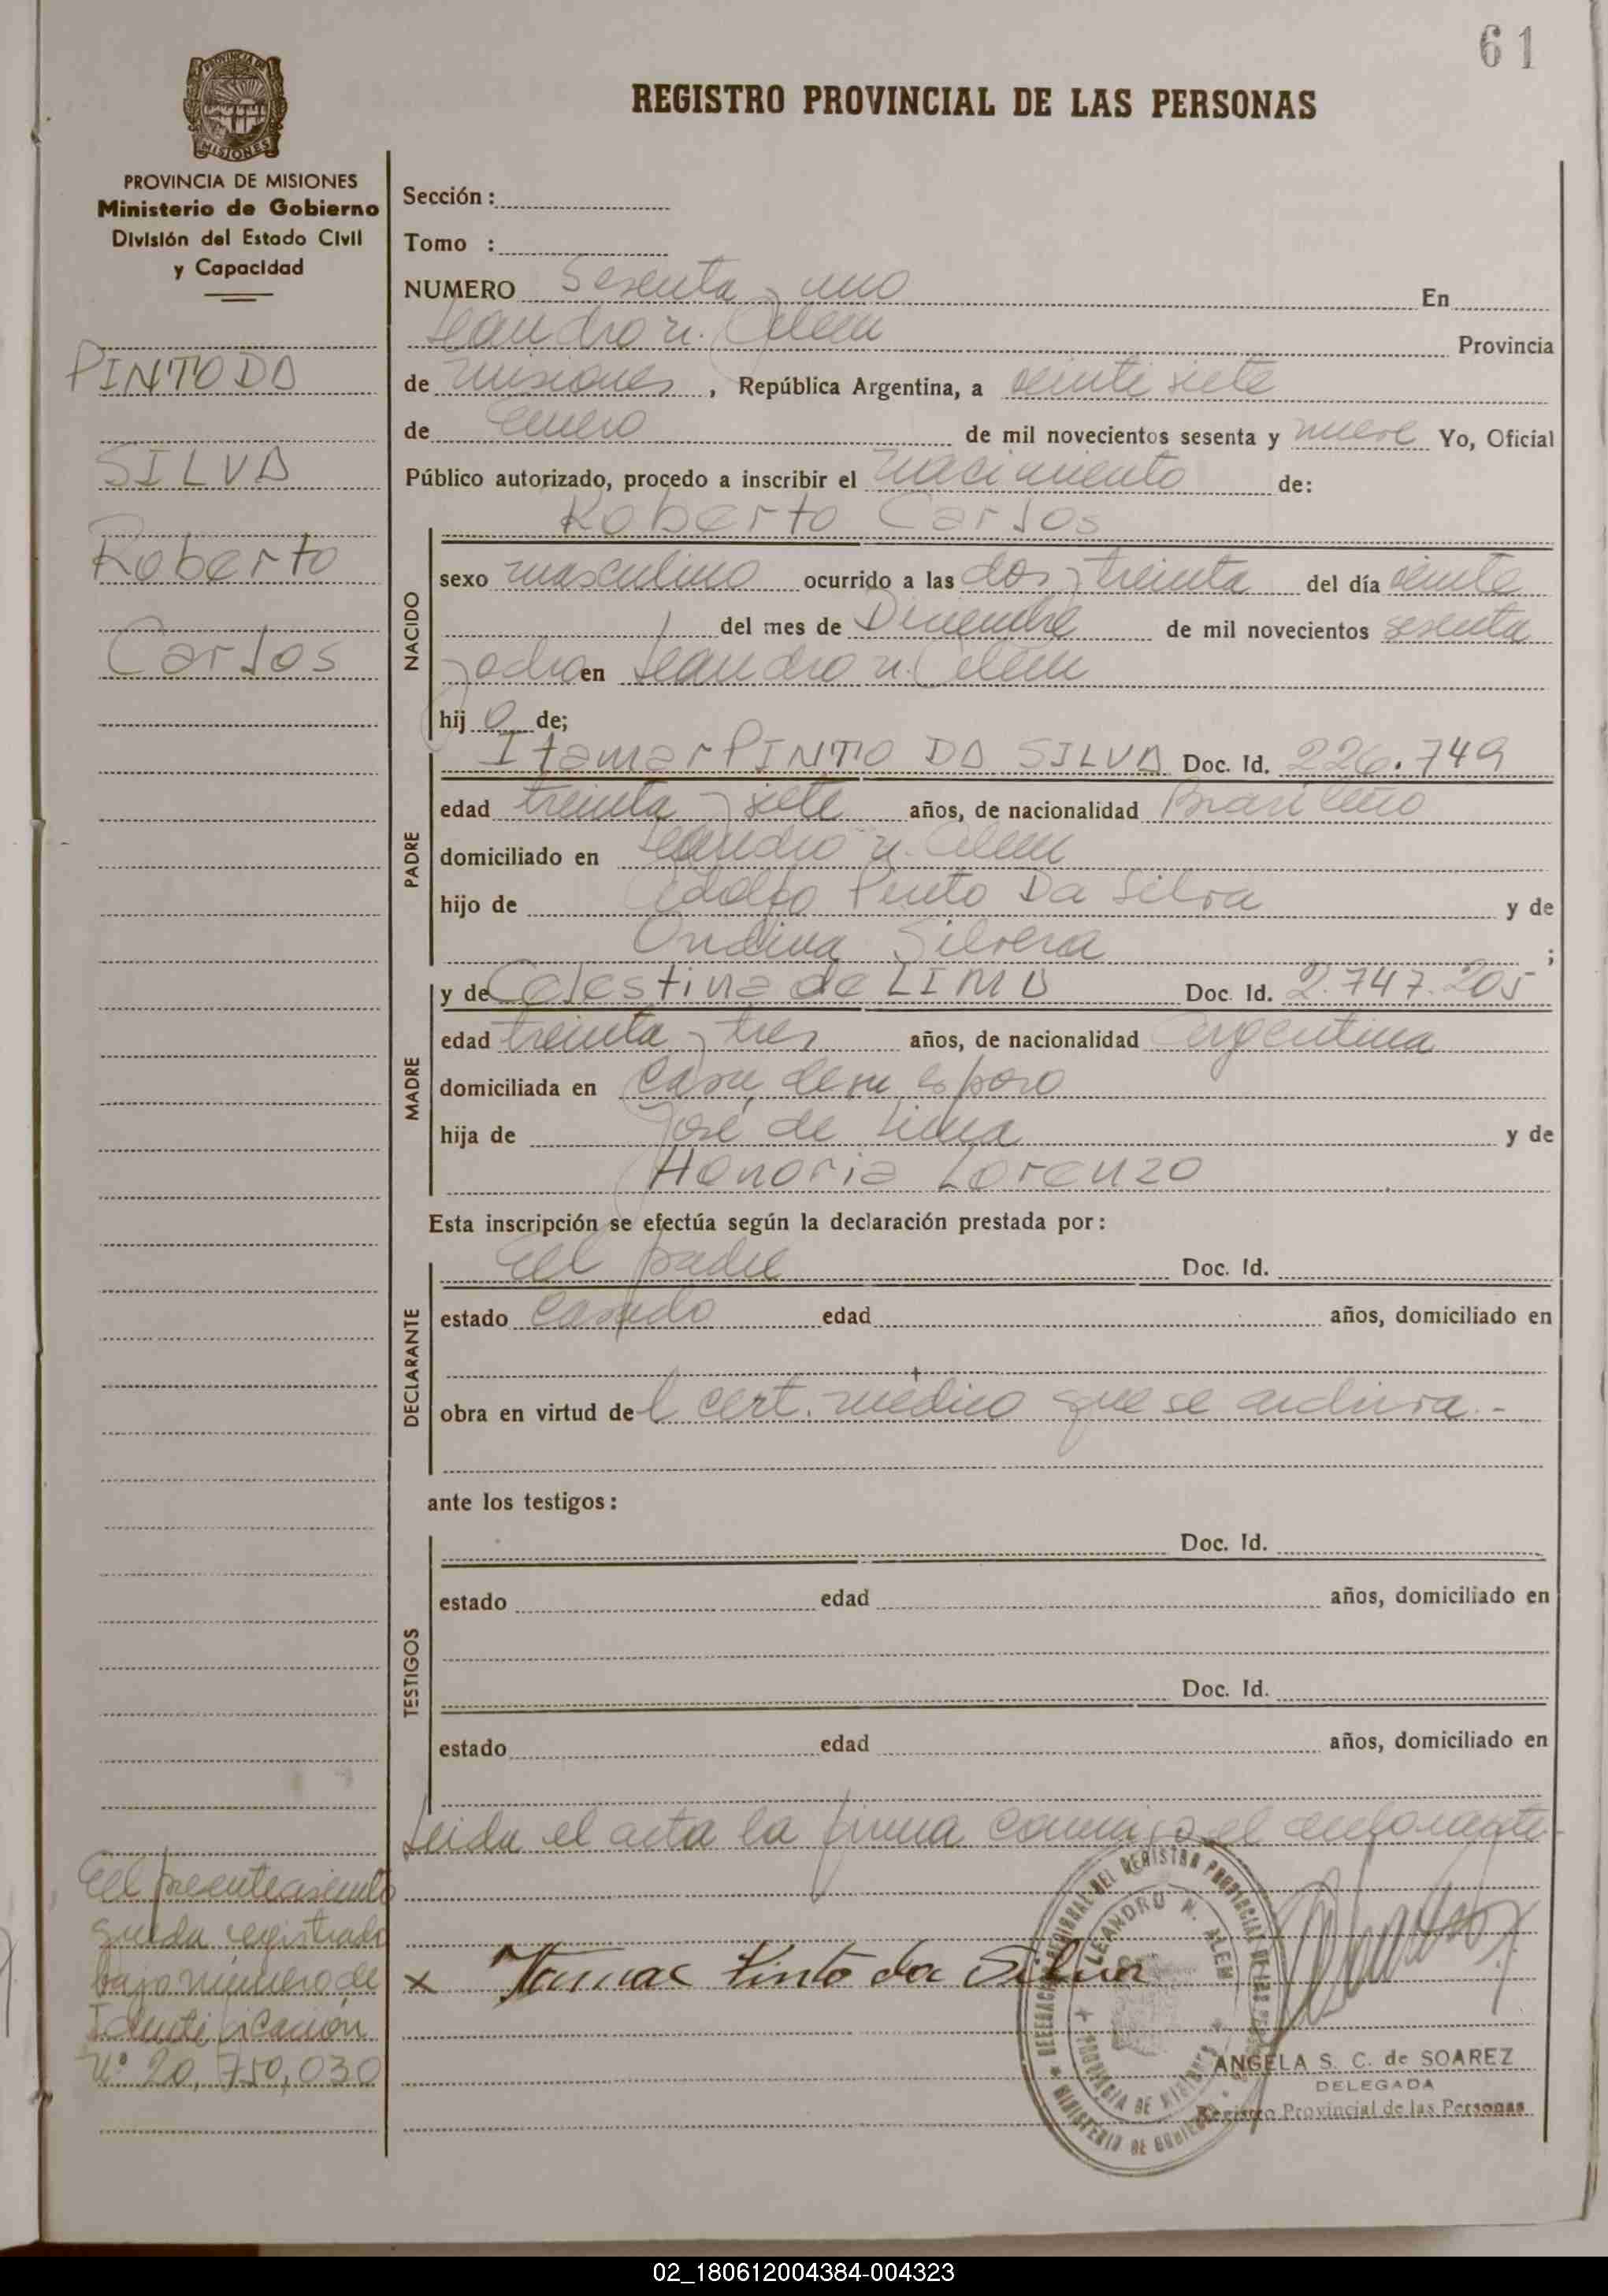 61
REGISTRO PROVINCIAL DE LAS PERSONAS
PROVINCIA DE
MISIONES
PROVINCIA DE MISIONES
Ministerio de Gobierno
División del Estado Civil
y Capacidad
PINTO DA
SILVA
Roberto
Carlos
Sección :
Tomo :
NUMERO Sesenta y uno En
Leandro N. Alem Provincia
de Misiones, República Argentina, a veinte siete
de Enero de mil novecientos sesenta y nueve Yo, Oficial
Público autorizado, procedo a inscribir el nacimiento de:
Roberto Carlos
NACIDO
sexo masculino ocurrido a las dos y treinta del día veinte
del mes de Diciembre de mil novecientos sesenta
y ocho en Leandro N. Alem
hijo de;
PADRE
Itamar PINTO DA SILVA Doc. Id. 226.749
edad treinta y siete años, de nacionalidad Brasileño
domiciliado en Leandro N. Alem
hijo de Adolfo Pinto Da Silva y de
Ondina Silvera ;
MADRE
y de Celestina de LIMA Doc. Id. 2.747.205
edad treinta y tres años, de nacionalidad Argentina
domiciliada en Casa de su esposo
hija de José de Lima y de
Honoria Lorenzo
Esta inscripción se efectúa según la declaración prestada por:
DECLARANTE
El padre Doc. Id.
estado Casado edad años, domiciliado en
obra en virtud del cert. médico que se archiva.-
ante los testigos:
TESTIGOS
Doc. Id.
estado edad años, domiciliado en
Doc. Id.
estado edad años, domiciliado en
Leida el acta la firma conmigo el
El presente asiento
queda registrado
bajo número de
Identificación
N° 20,750,030
x Itamar Pinto da Silva
DELEGACION DEL REGISTRO PROVINCIAL DE LAS
LEANDRO N. ALEM
PROVINCIA DE MISIONES
MINISTERIO DE GOBIERNO
ANGELA S. C. de SOAREZ
DELEGADA
Registro Provincial de las Personas
02_180612004384-004323